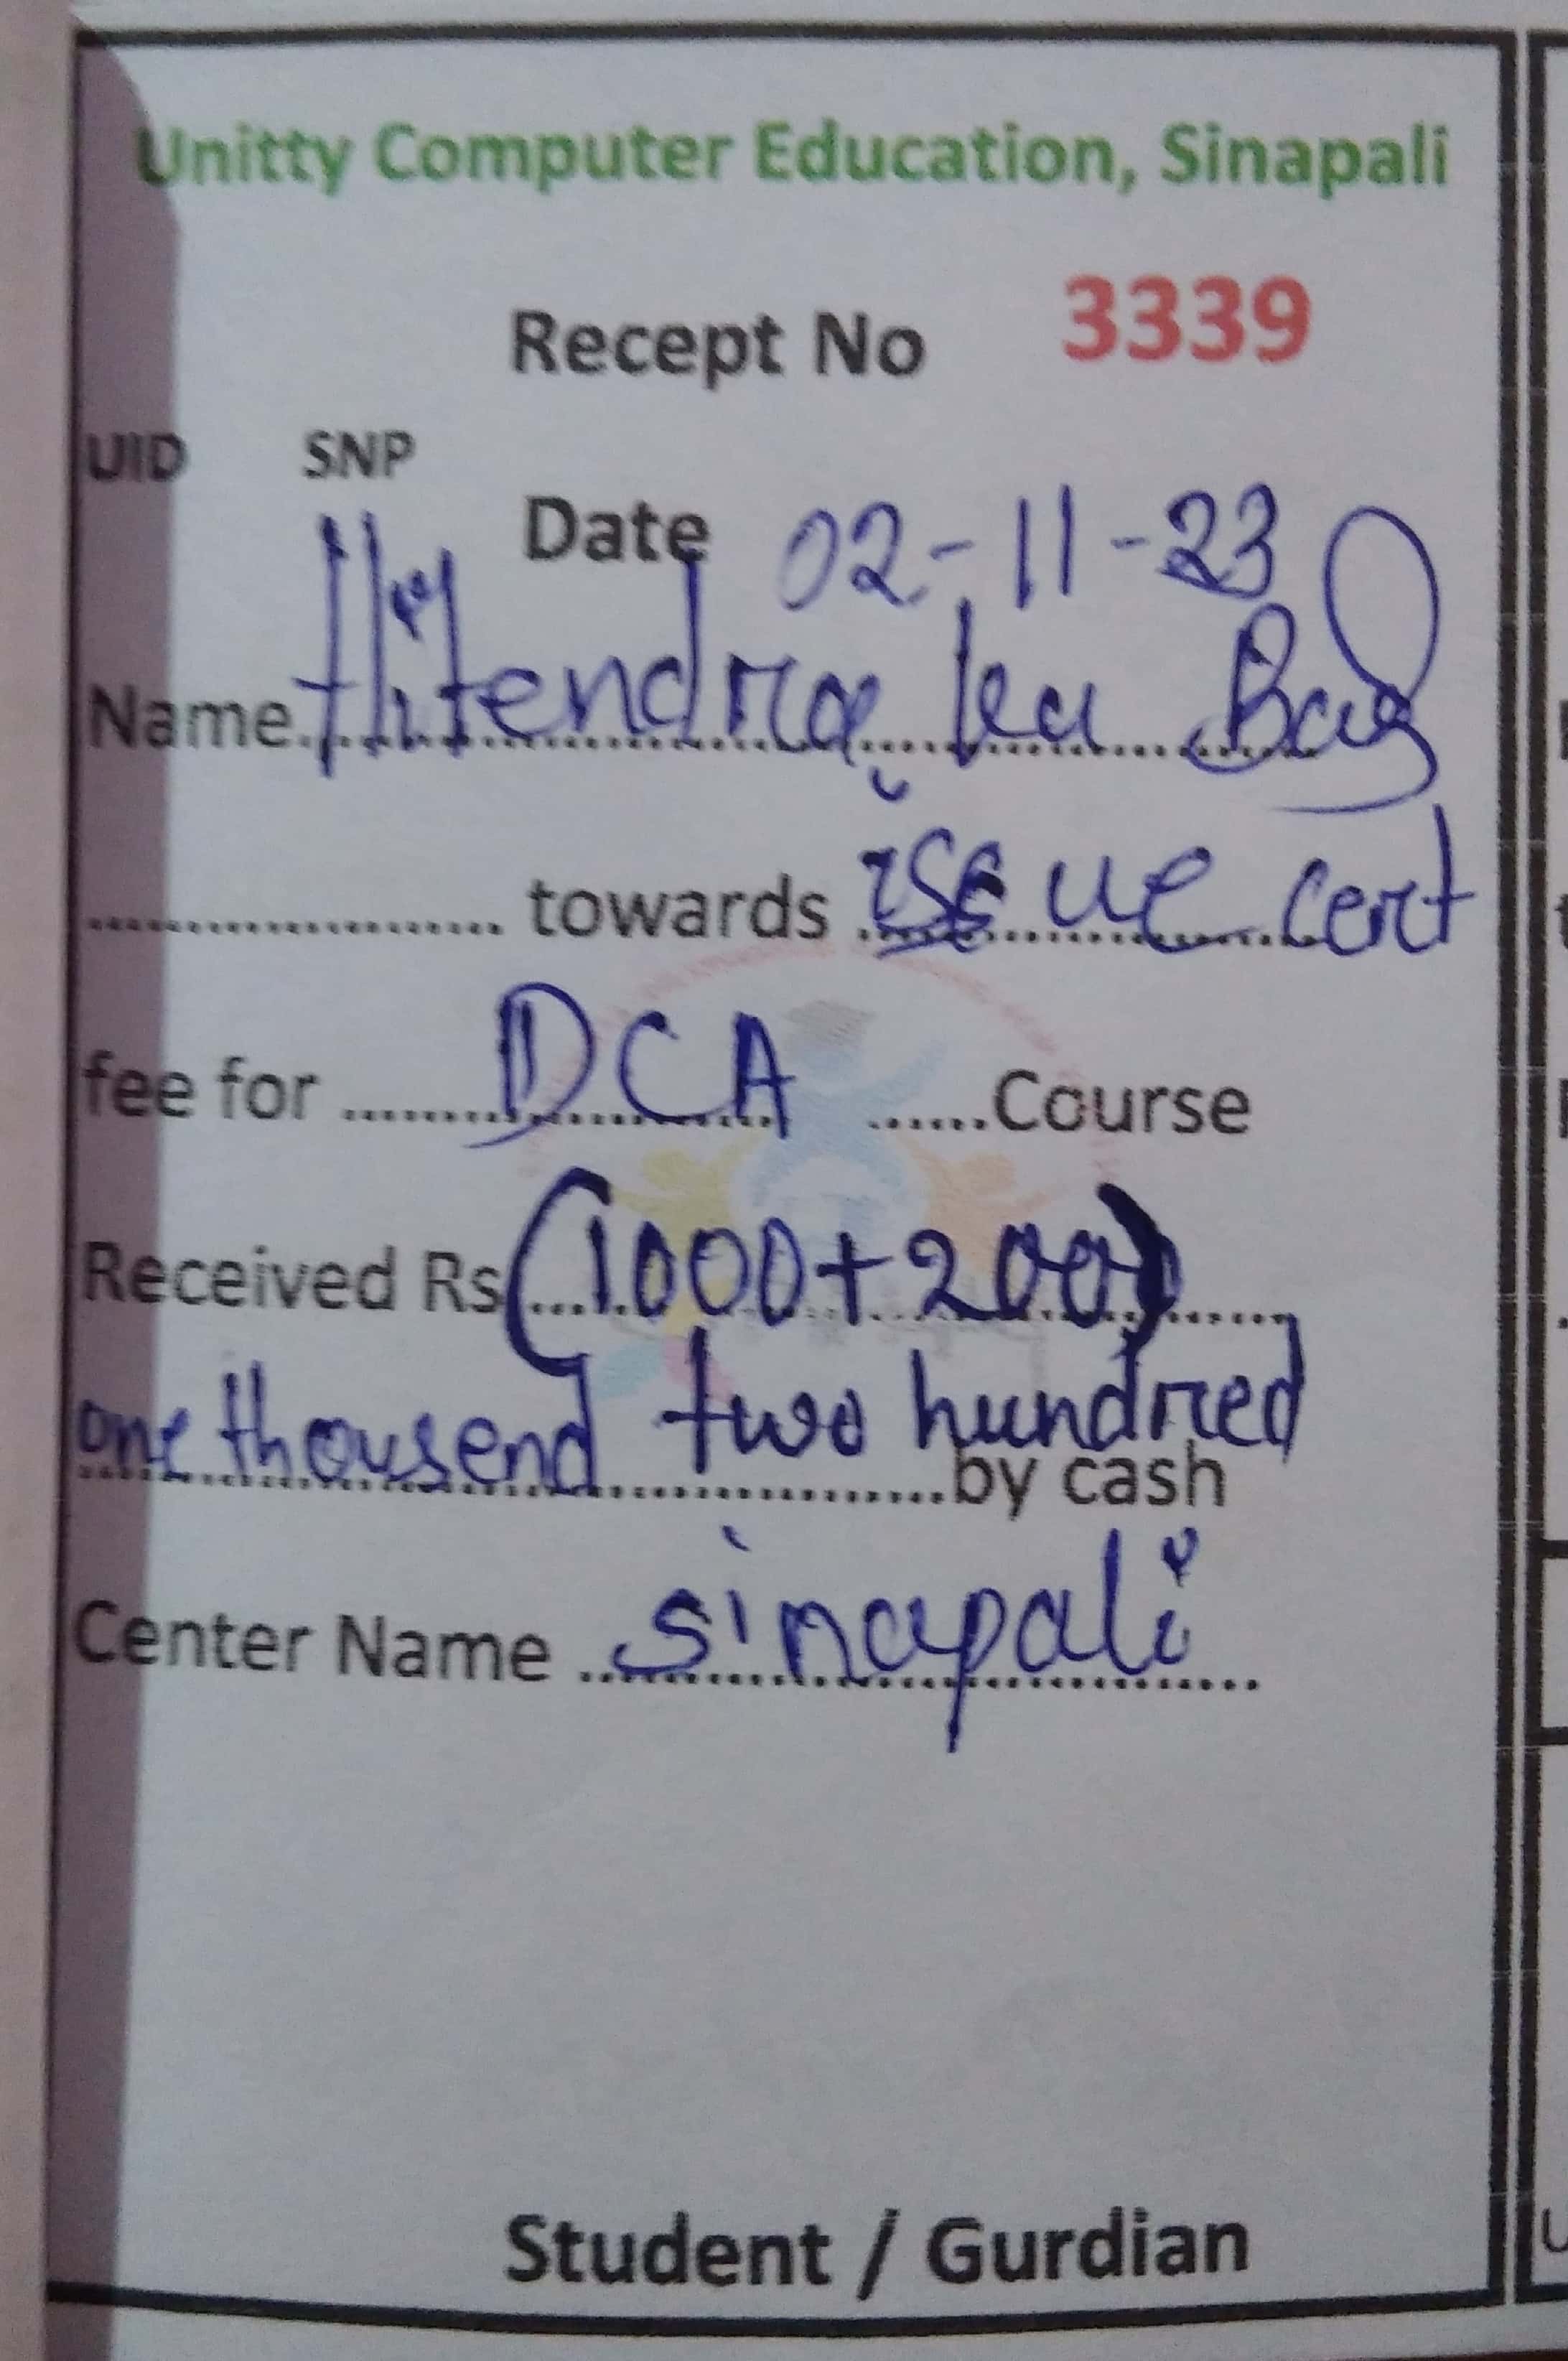 Unitty Computer Education, Sinapali
Recept No 3339
UID SNP
Date 02-11-23
Name Hitendra ku Bag
towards issue cert
fee for DCA Course
Received Rs (1000+200)
one thousend two hundred
by cash
Center Name sinapali
Student / Gurdian